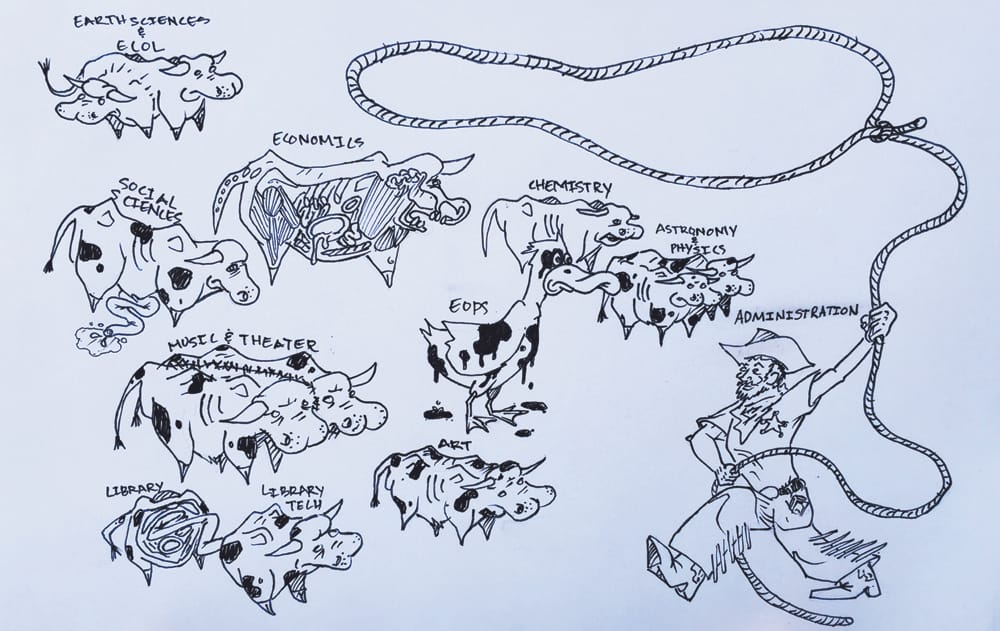 EARTH SCIENCES
&
ECOL
ECONOMICS
SOCIAL
CIENCES
CHEMISTRY
ASTRONOMY
&
PHYSICS
EOPS
ADMINISTRATION
MUSIC & THEATER
ART
LIBRARY
LIBRARY
TECH